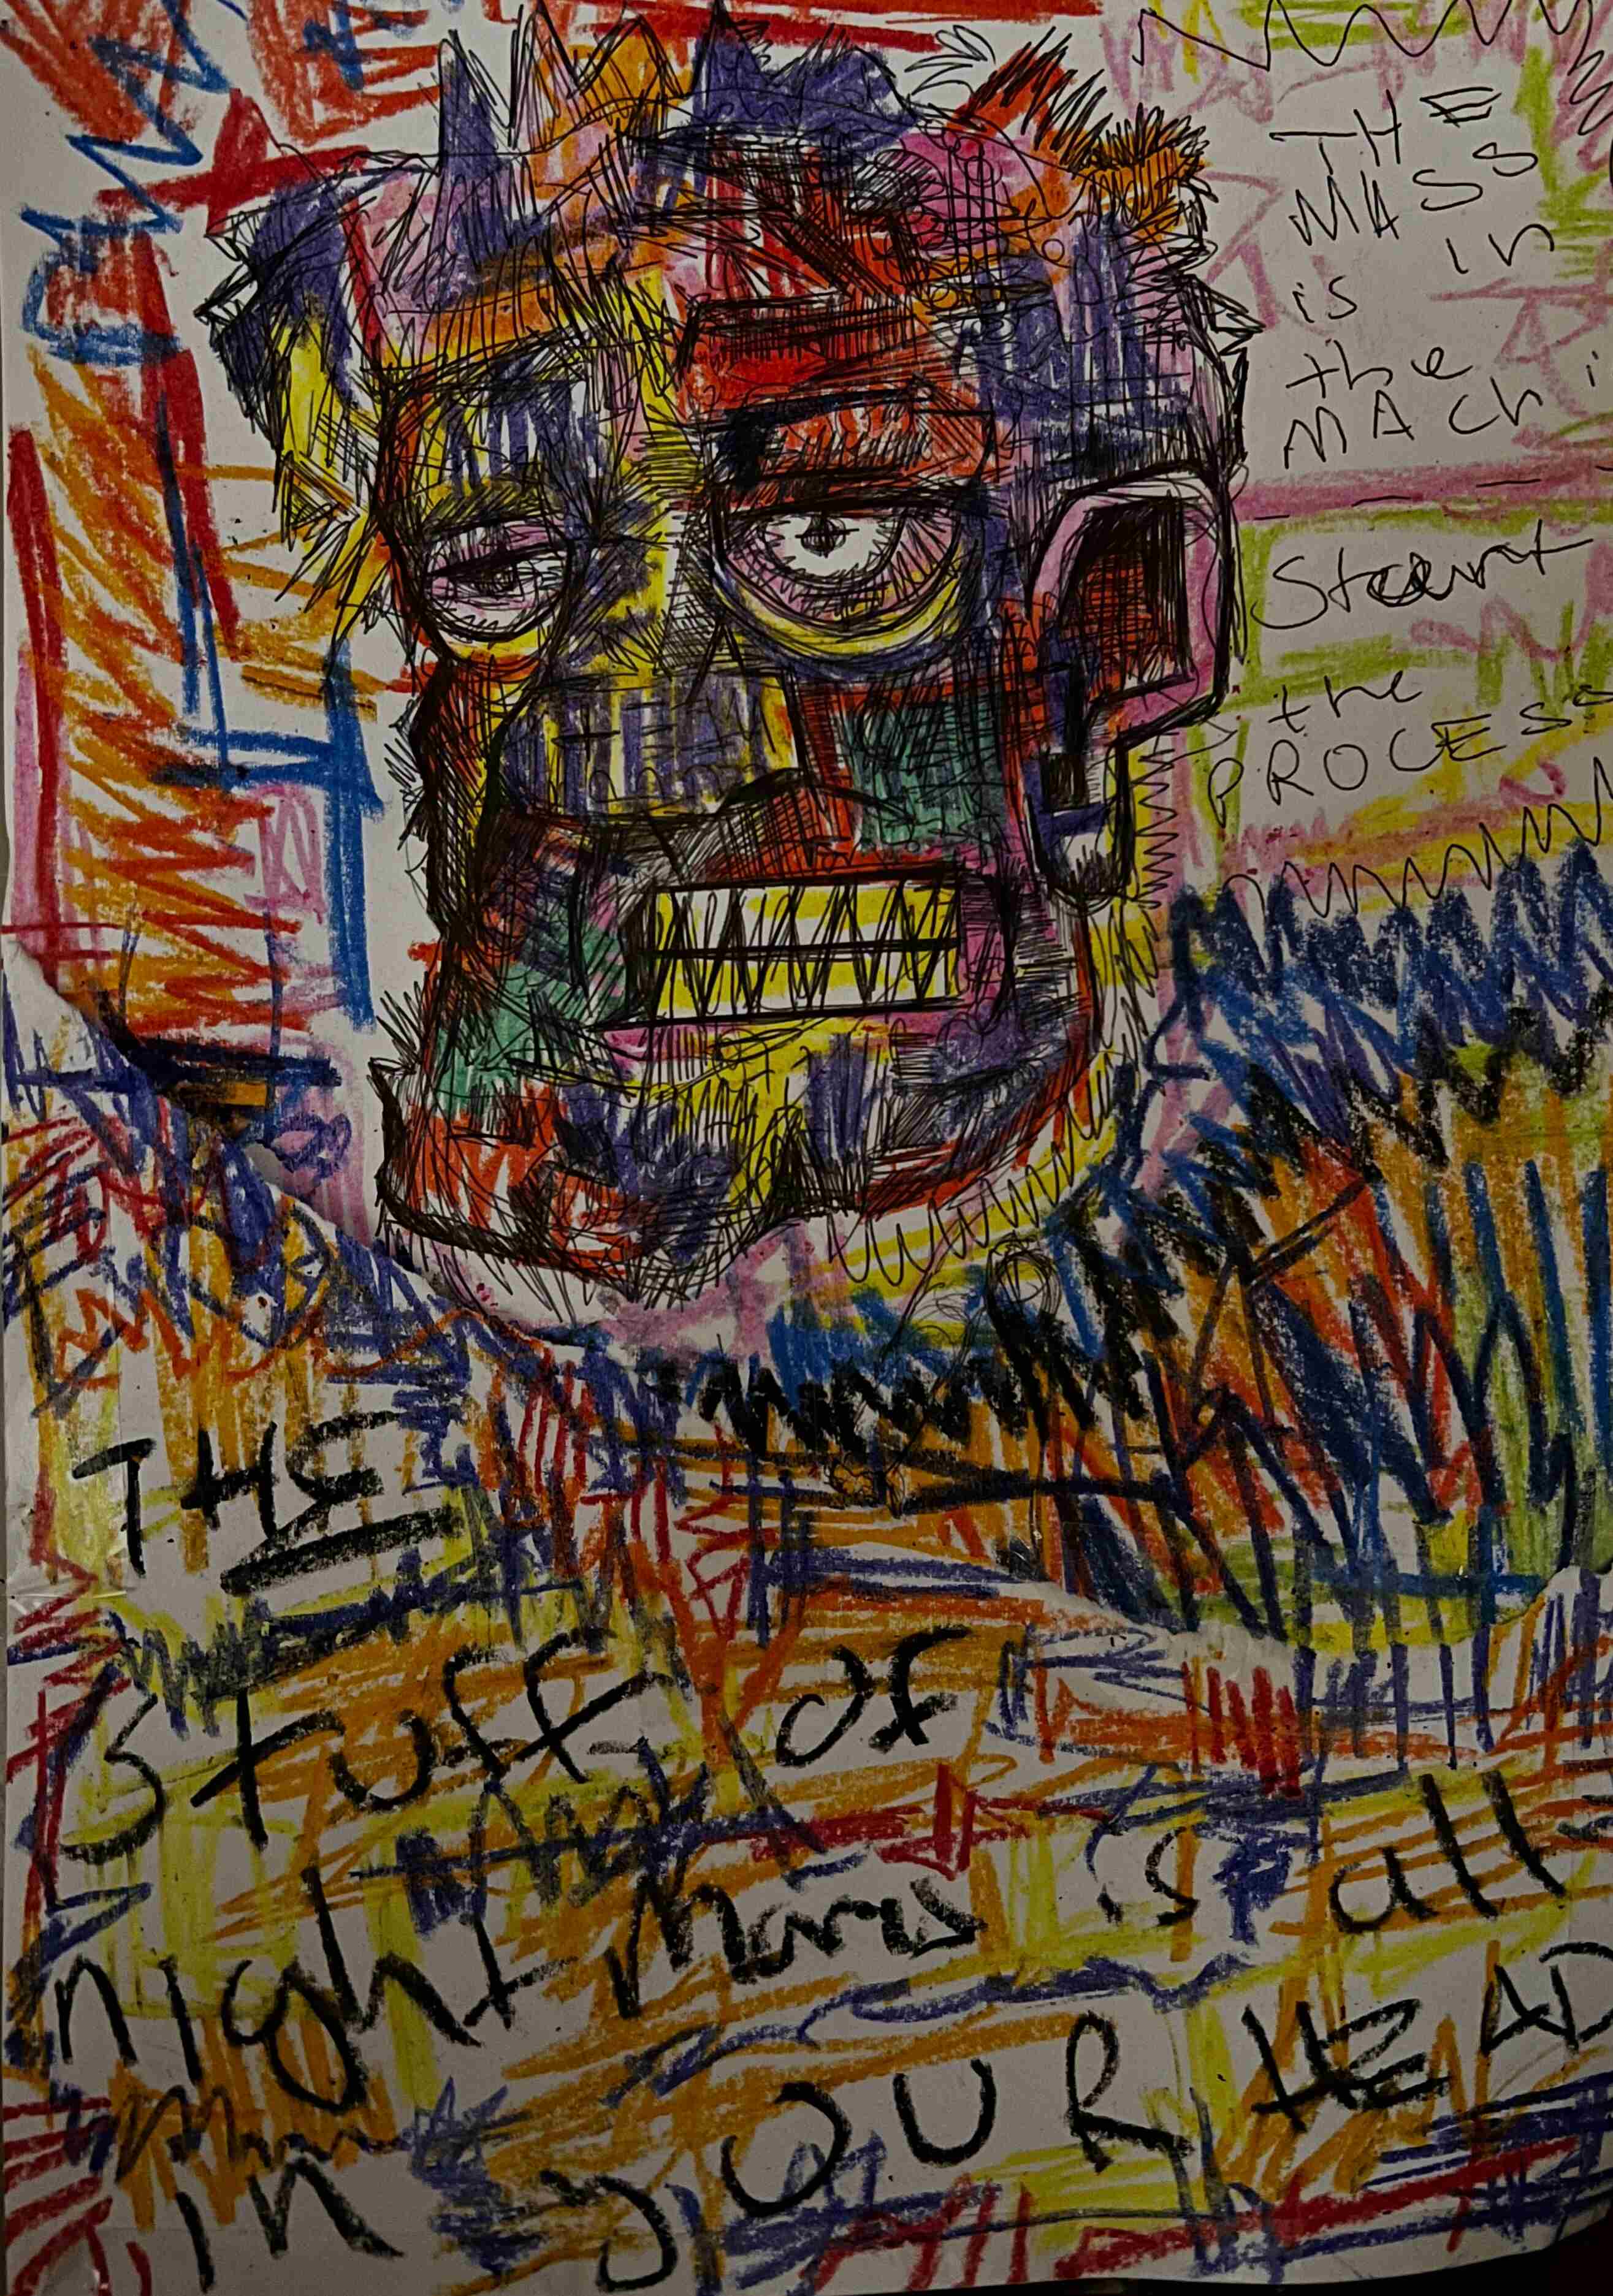 THE
MASS
is in
the
MAChi
Start
the
PROCESS
THE
Stuff of
nightmares is all
in yOUR HEAD